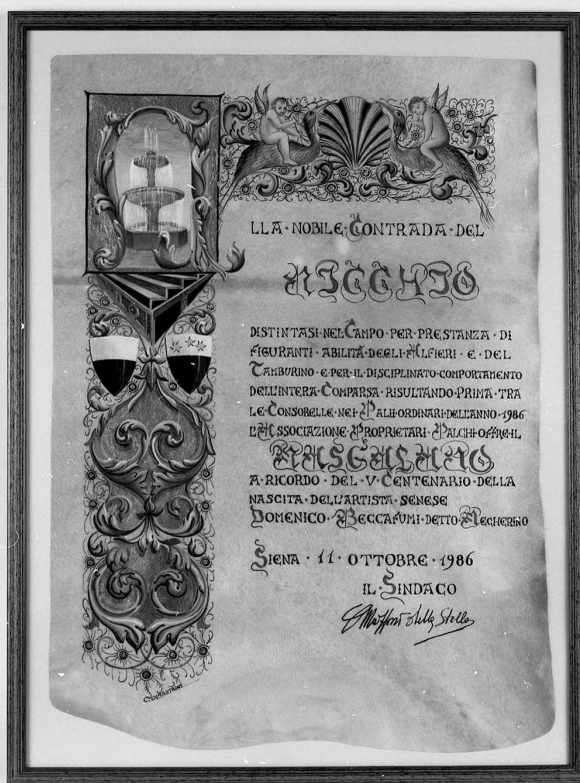 ALLA·NOBILE·CONTRADA·DEL
NICCHIO
DISTINTASI·NEL·CAMPO·PER·PRESTANZA·DI
FIGURANTI·ABILITÀ·DEGLI·ALFIERI·E·DEL
TAMBURINO·E·PER·IL·DISCIPLINATO·COMPORTAMENTO
DELL'INTERA·COMPARSA·RISULTANDO·PRIMA·TRA
LE·CONSORELLE·NEI·PALII·ORDINARI·DELL'ANNO·1986
L'ASSOCIAZIONE·PROPRIETARI·PALCHI·OFFRE·IL
MASGALANO
A·RICORDO·DEL·V·CENTENARIO·DELLA
NASCITA·DELL'ARTISTA·SENESE
DOMENICO·BECCAFUMI·DETTO·MECHERINO
SIENA·11·OTTOBRE·1986
IL·SINDACO
Mazzoni della Stella